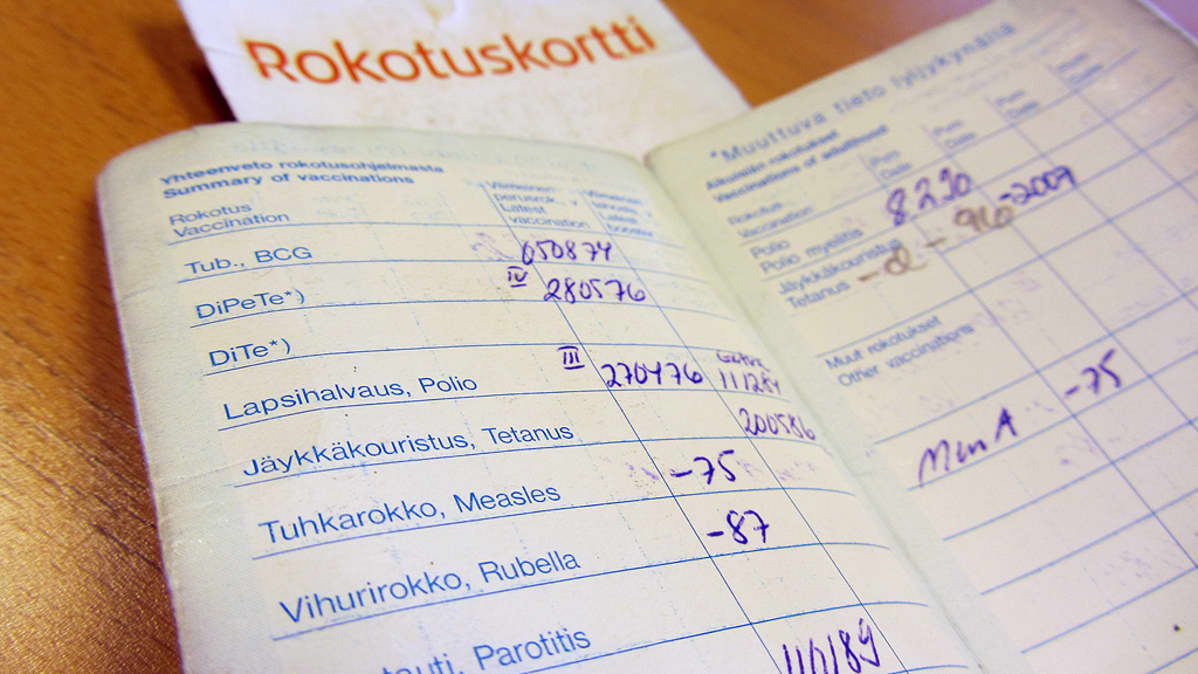 Rokotuskortti
Yhteenveto rokotusohjelmasta
Summary of vaccinations
Rokotus
Vaccination
Viimeinen
perusrok.
Latest
vaccination
Latest
booster
Tub., BCG 050874
DiPeTe*) IV 280576
DiTe*)
Lapsihalvaus, Polio III 270476
Jäykkäkouristus, Tetanus 200586
Tuhkarokko, Measles -75
Vihurirokko, Rubella -87
tauti, Parotitis
*Muuttuva tieto lyijykynällä
Aikuisiän rokotukset
Vaccinations of adulthood
Rokotus
Vaccination
Pvm
Date
Pvm
Date
Pvm
Date
Pvm
Date
Polio
Polio myelitis
Jäykkäkouristus
Tetanus
-96 -2009
Muut rokotukset
Other vaccinations
Men A -75